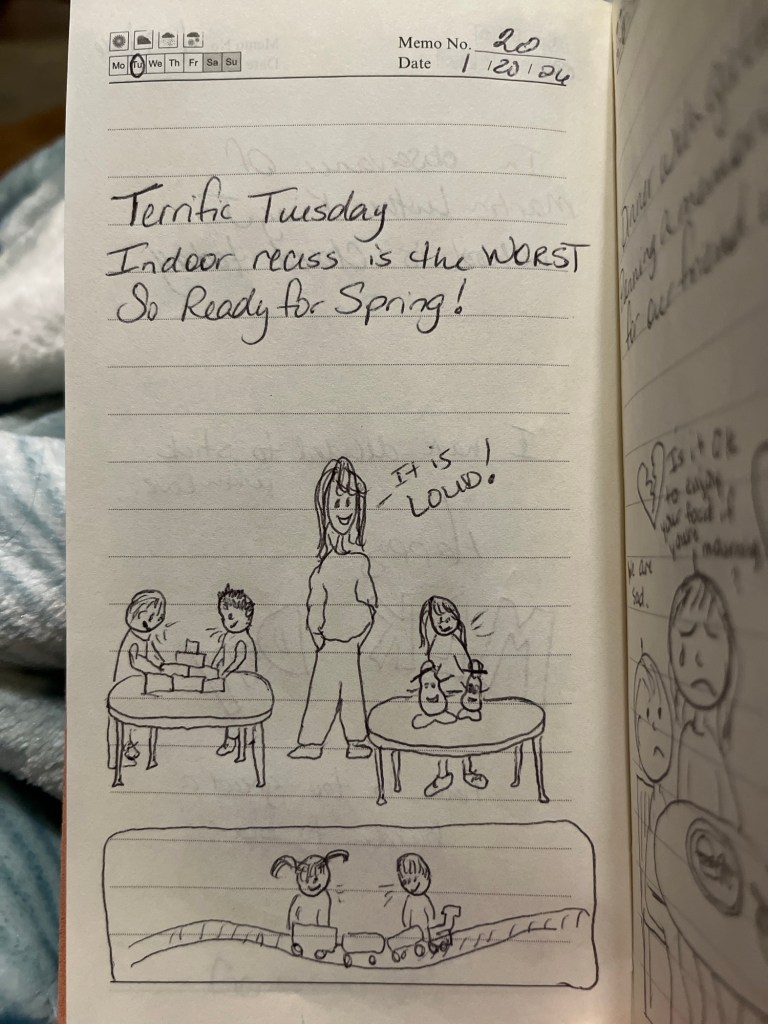 Memo No. 20
Mo Tu We Th Fr Sa Su
Date 1 / 20 / 26
Terrific Tuesday
Indoor recess is the WORST
So Ready for Spring!
It is
LOUD!
for our friend
Is it OK
to enjoy
your food if
you're mourning
?
We are
sad.